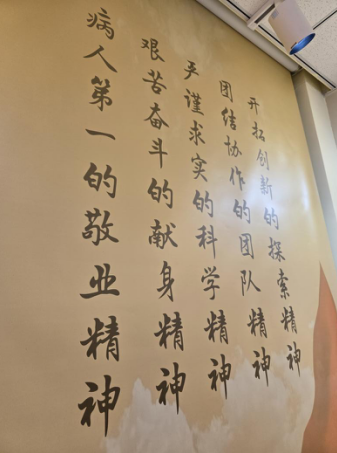 病人第一的敬业精神
艰苦奋斗的献身精神
严谨求实的科学精神
团结协作的团队精神
开拓创新的探索精神